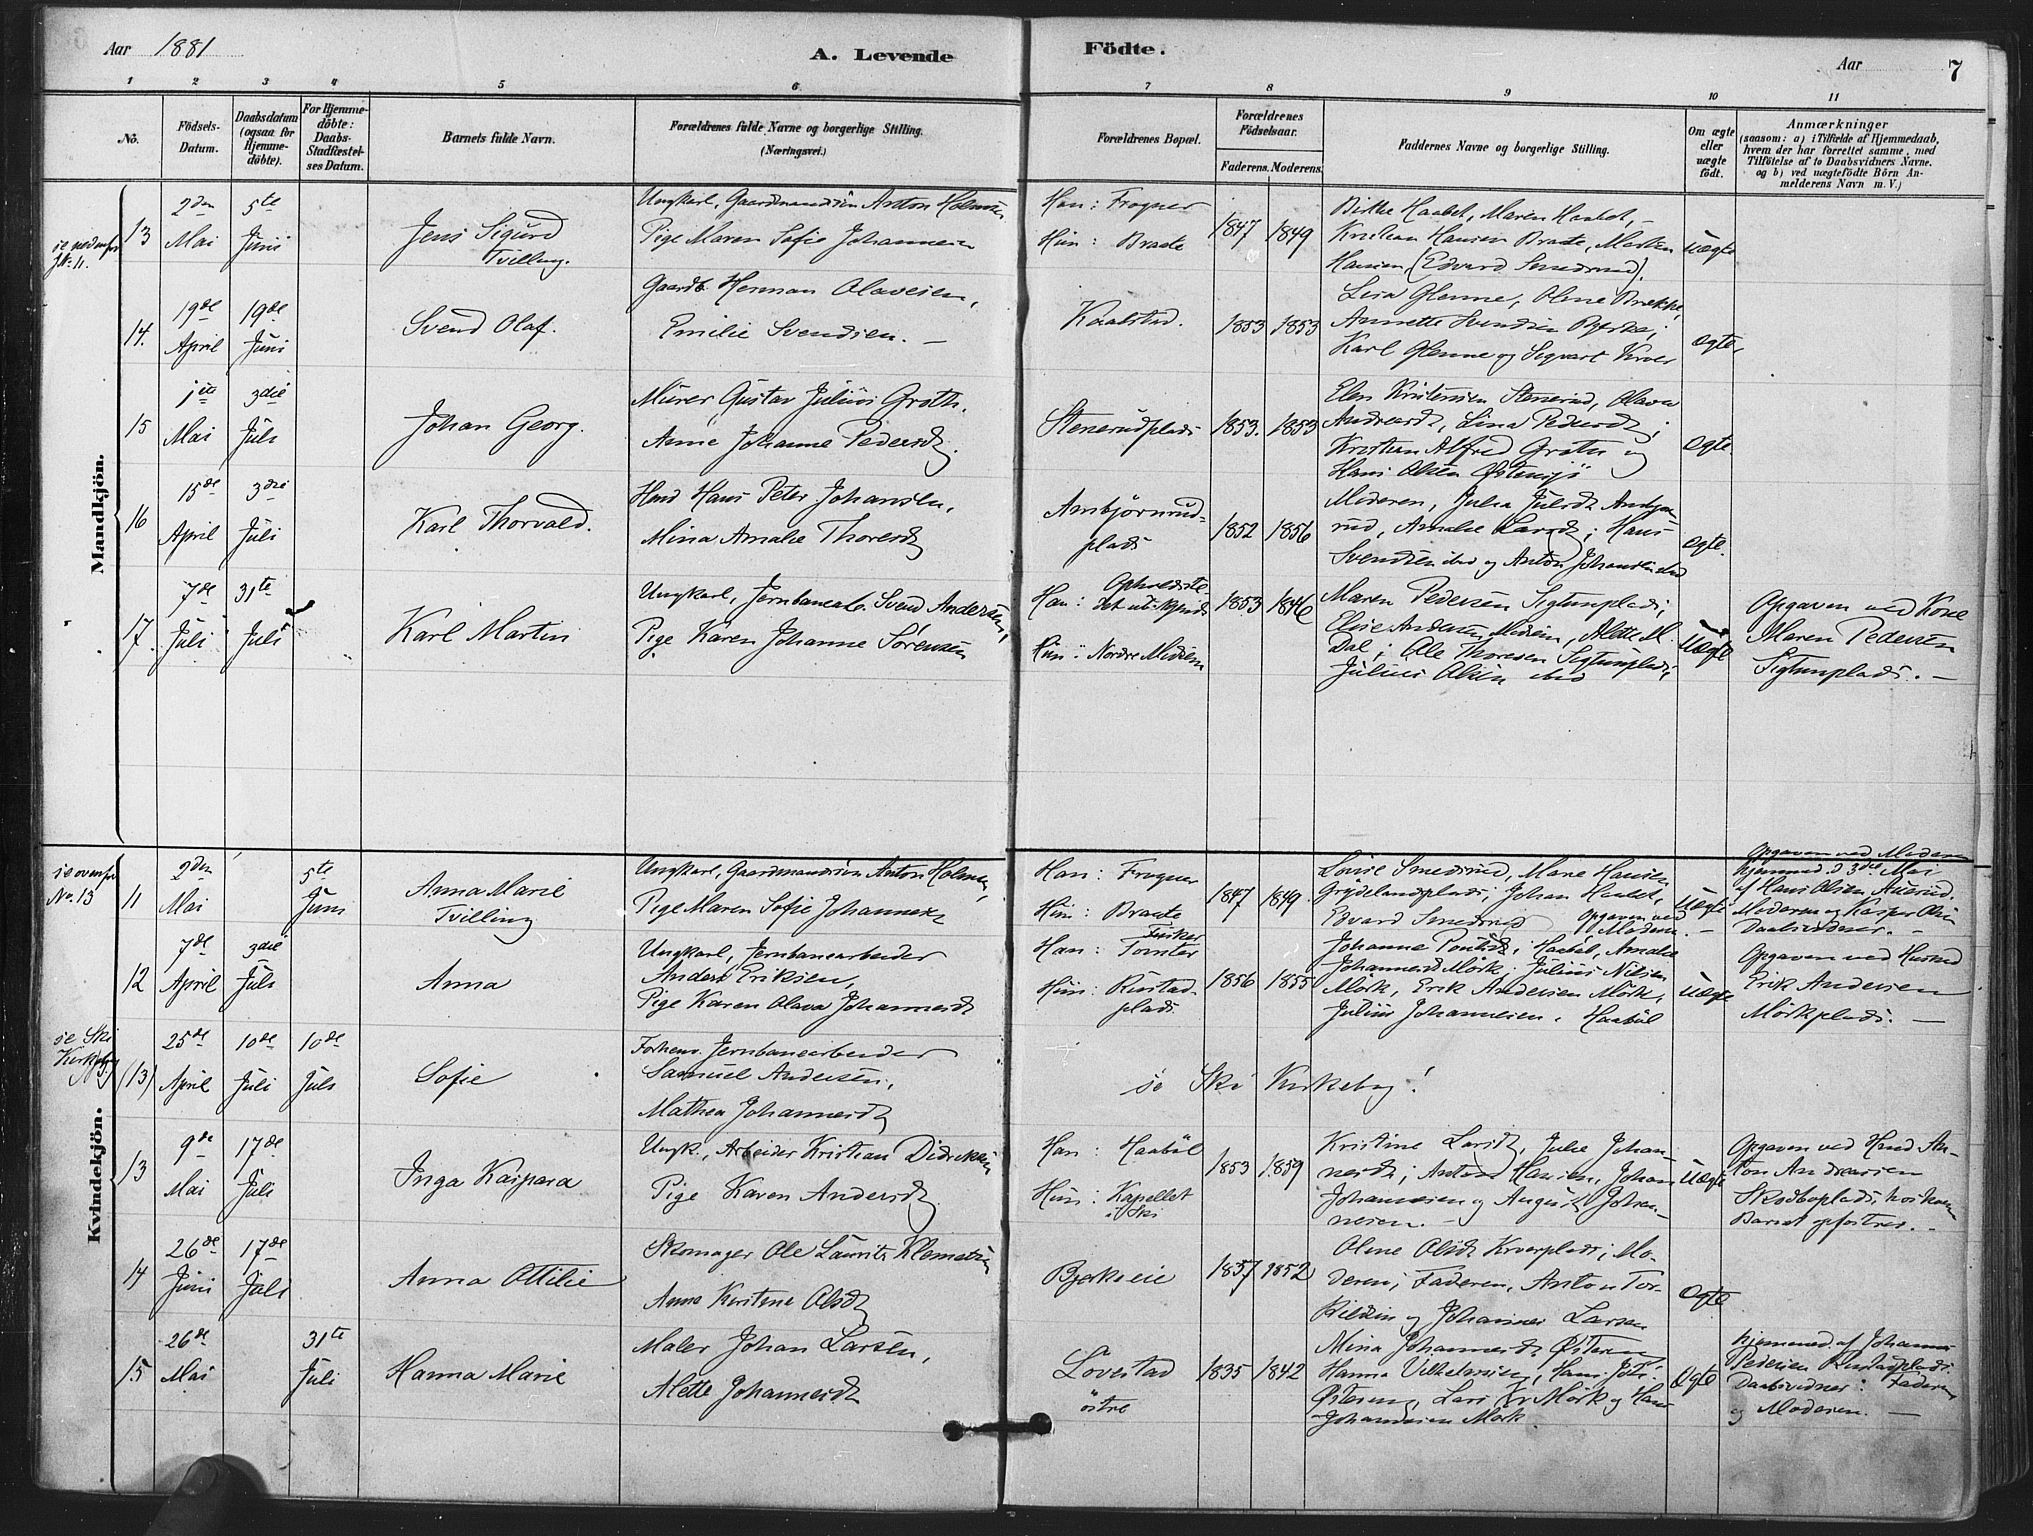 Aar 1881
A. Levende Födte.
Aar 7
1 2 3 4 5 6 7 8 9 10 11
No.
Födsels-Datum.
Daabsdatum (ogsaa for Hjemme-döbte).
For Hjemme-döbte: Daabs-Stadfæstel-ses Datum.
Barnets fulde Navn.
Forældrenes fulde Navne og borgerlige Stilling.
(Næringsvei.)
Forældrenes Bopæl.
Forældrenes Födselsaar.
Faderens. Moderens.
Faddernes Navne og borgerlige Stilling.
Om ægte eller uægte födt.
Anmærkninger
(saasom: a) i Tilfælde af Hjemmedaab, hvem der har forrettet samme, med Tilföielse af to Daabsvidners Navne. og b) ved uægtefödte Börn Anmelderens Navn m. V.)
Mandkjön.
se nedenfor No. 11.
13
2den Mai
5te Juni
Jens Sigurd
Tvilling.
Ungkarl, Gaardmandssön Anton Holmsen
Pige Maren Sofie Johannesen
Han: Frogner
Hun: Braate
1847 1849
Haabet, Maren Haabet, –
Kristian Hansen Braate, Martin
Hansen (Edvard Smedsrud).
Uægte
14.
19de April
19de Juni
Svend Olaf.
Gaardb. Herman Olavesen,
Emilie Svendsen. –
Kaalstad.
1853 1853
Lina Glenne, Oline Brække,
Annette Svendsen
Karl Glenne og Sigvart Kroer
ægte
15
1ste Mai
3die Juli
Johan Georg.
Murer Gustav Julius Groth.
Anne Johanne Pedersdt.
Stenerudplads
1853. 1853
Elen Kristensen Stenerud, Olava
Andreasdt, Lina Pedersdt;
Kristian Alfred Groth og
Hans Olsen Østensjö
ægte.
16
15de April
3die Juli
Karl Thorvald.
Hmd Hans Peter Johansen,
Mina Amalie Thoresdt
Arnbjørnrud-
plads
1852 1856
Moderen, Julia Julsdt Arnbjørn-
rud, Amalie Larsdt; Hans
Svendsen ibd og Anton Johansen ibd
ægte.
17.
7de Juli
31te Juli
Karl Martin
Ungkarl, Jernbanearb. Svend Andersen,
Pige Karen Johanne Sørensen
Han: Opholdste-
det ubekjendt
Hun: Nordre Midsem
1853 1846
Maren Pedersen Sigtunplads;
Elise Andersen Midsem, Alette M.
Dal; Ole Thoresen Sigtunplads,
Julius Olsen ibd
Uægte
Opgaven ved Kone
Maren Pedersen
Sigtunplads. –
Kvindekjön.
se ovenfor No. 13
11
2den Mai
5te Juni
Anna Marie
Tvilling
Ungkarl, Gaardmandssön Anton Holmsen,
Pige Maren Sofie Johannesen
Han: Frogner
Hun: Braate
1847 1849.
Louise Smedsrud, Marie Hansen
Grydelandsplads; Johan Haabet,
Edvard Smedsrud Opgaven ved Moderen. –
Uægte
Opgaven ved Moderen
hjemmed. d 3die Mai
af Hans Olsen
Moderen og Kasper
Daabsvidner. –
12
7de April
3die Juli
Anna
Ungkarl, Jernbanearbeider
Anders Eriksen,
Pige Karen Olava Johannesdt
Han: Fisker
Tomter
Hun: Rustad-
plads.
1856 1855
Johanne Poulsdt, Haabøl, Amalie
Johannesdt Mörk; Julius Nilsen
Mörk, Erik Andersen Mörk,
Julius Johannesen, Haabøl
Uægte
Opgaven ved Husmd
Erik Andersen
Mörkplads. –
se Ski Kirkebog.
(13)
25de April
10de Juli
10de Juli
Sofie
Forhenv. Jernbanearbeider
Samuel Andersen,
Mathea Johannesdt
se Ski Kirkebog!
13
9de Mai
17de Juli
Inga Kaspara
Ungk., Arbeider Kristian Didriksen
Pige Karen Andersdt.
Han: Haabøl
Hun: Kapellet
i Ski
1853 1859
Kristine Larsdt, Julie Johan-
nesdt; Anton Hansen, Johan
Johannesen og August Johan-
nesen. –
Uægte
Opgaven ved Hmd An-
ton Andreasen
Skodboplads, hos hvem
Barnet opfostres. –
14
26de Juni
17de Juli
Anna Ottilie
Skomager Ole Laurits Klemetsen
Anna Kirstine Olsdt
Bjerkseie
1857 1852
Oline Olsdt Kroerplads; Mo-
deren; Faderen, Anton Tor-
kildsen og Johannes Larsen
ægte
15
26de Mai
31te Juli
Hanna Marie
Maler Johan Larsen,
Alette Johannesdt
Lövestad
östre
1835 1842
Mina Johannesdt
Hanna Vilhelmsen, Hans Joh.
Lars Kr Mörk og Hans
Johannesen Mörk.
ægte
hjemmed. af Johannes
Pedersen Rustadplads
Daabsvidner: Faderen
og Moderen. –